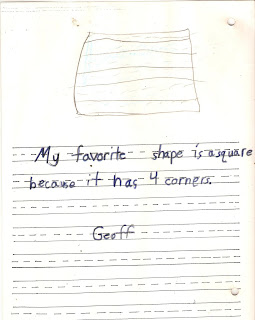 My favorite shape is a square
because it has 4 corners.
Geoff